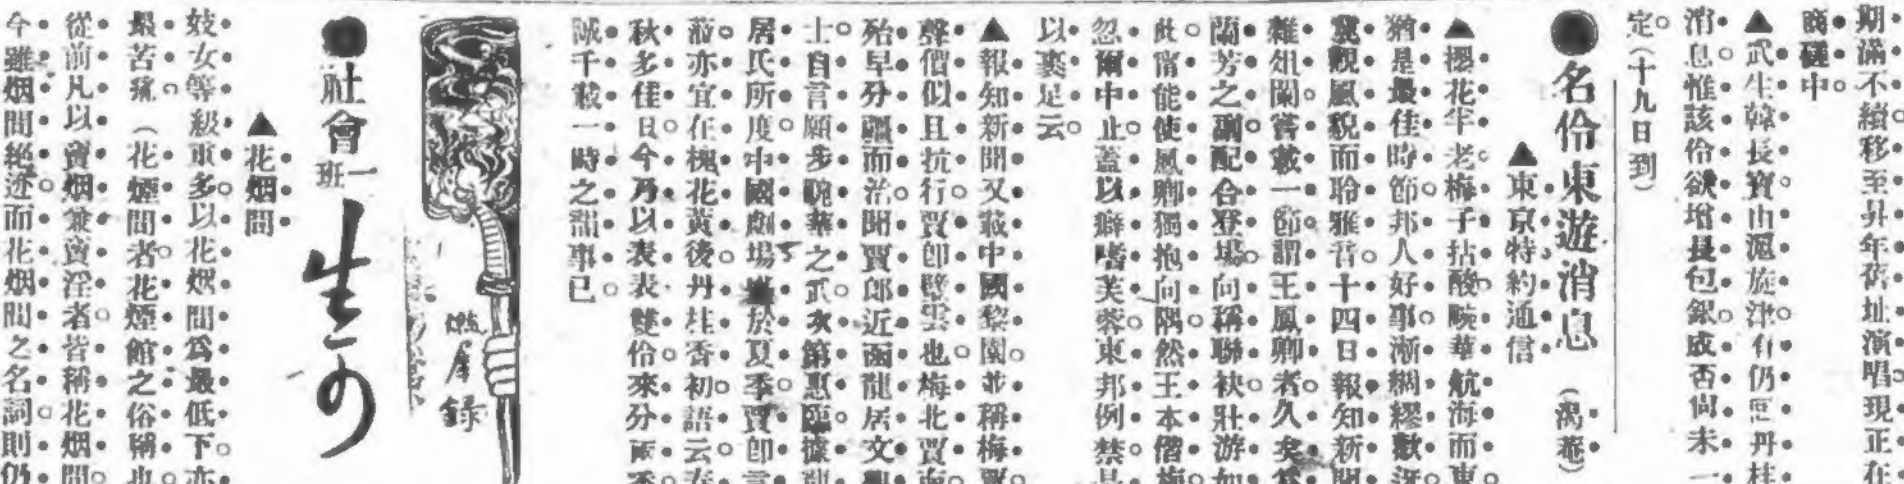 期滿不續移至昇年舊址演唱現正在
商磋中
▲武生韓長寶由滬旋津有仍回丹桂
消息惟該伶欲增長包銀成否尙未一
定(十九日到)
●名伶東遊消息
▲東京特約通信
▲櫻花半老梅子拈酸畹華航海而東
猶是最佳時節邦人好事漸綢繆數
覲風貌而聆雅音十四日報知新聞
雜俎闌嘗載一節謂王鳳卿者久矣爲
蘭芳之副配合登場向稱聯袂壯游如
此甯能使鳳卿獨抱向隅然王本偕梅
忽爾中止蓋以癖嗜芙蓉東邦例禁
以裹足云
▲報知新聞又載中國黎園並稱梅賈
聲價似且抗行賈卽璧雲也梅北賈南
殆早分疆而治聞賈郎近函龍居文學
士自言願步畹華之武次第惠臨據龍
居氏所度中國劇場 於夏季賈卽言
蒞亦宜在槐花黃後丹桂香初語云春
秋多佳日今乃以表表雙伶來分兩季
誠千載一時之韻事已
錄
●社會一班
▲花烟間
妓女等級重多以花烟間爲最低下亦
最苦痛(花煙間者花煙館之俗稱也
從前凡以賣烟兼賣淫者皆稱花烟間
今雖烟間絕迹而花烟間之名詞則仍